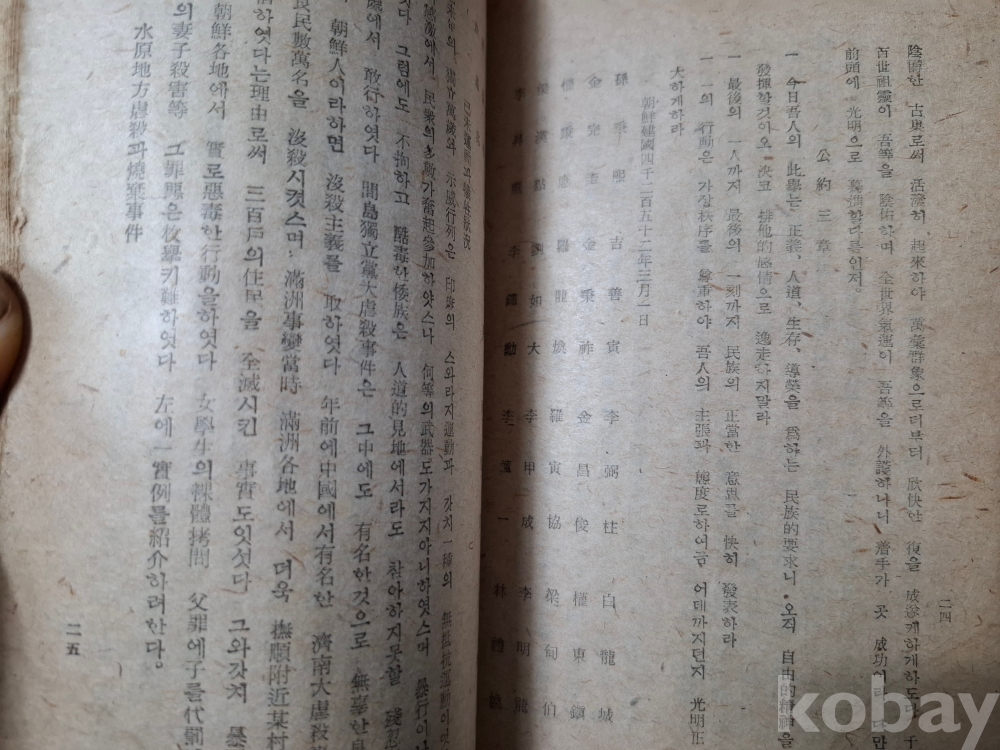 陰鬱한 古巢로써 活潑히 起來하야 萬彙群象으로더부러 欣快한 復을 成遂케하게하도다 千
百世祖靈이 吾等을 陰佑하며 全世界氣運이 吾等을 外護하나니 着手가 곳 成功이라 다만
前頭에 光明으로 驀進할다름인저。
公約三章
一 今日吾人의 此擧는 正義、人道、生存、尊榮을 爲하는 民族的要求니・오직 自由的精神을
發揮할것이오、決코 排他的感情으로 逸走하지말라
一 最後의 一人까지 最後의 一刻까지 民族의 正當한 意思를 快히 發表하라
一 一의 行動은 가장秩序를 尊重하야 吾人의 主張과 態度로하여금 어데까지던지 光明正
大하게하라
朝鮮建國四千二百五十二年三月一日
孫秉熙 吉善宙 李弼柱 白龍城
金完圭 金秉祚 金昌俊 權東鎭
權秉悳 羅龍煥 羅仁協 梁甸伯
梁漢默 劉如大 李甲成 李明龍
李昇薰 李鍾勳 李鍾一 林禮煥
二四
獨立萬歲와 示威行列은 印度의 스와라지運動과 갓치一種의 無抵抗運動이엿
에서、民衆의多數가奮起參加하얏스나 何等의武器도가지지아니하엿스며 暴行이나
엿다 그럼에도 不拘하고 酷毒한倭族은 人道的見地에서라도 참아하지못할 殘忍
에서 敢行하엿다 間島獨立黨大虐殺事件은 그中에도 有名한것으로 無辜한良
朝鮮人이라하면 沒殺主義를 取하엿다 年前에中國에서有名한 濟南大虐殺
良民數萬名을 沒殺시켯스며、滿洲事變當時 滿洲各地에서 더욱 撫順附近某村
하엿다는理由로써 三百戶의住民을 全滅시킨 事實도잇섯다 그와갓치 暴
朝鮮各地에서 實로惡毒한行動을하엿다 女學生의裸體拷問 父罪에子를代罰
의妻子殺害等 그罪惡은枚擧키難하엿다 左에一實例를紹介하려한다。
水原地方虐殺과燒棄事件
二五
kobay